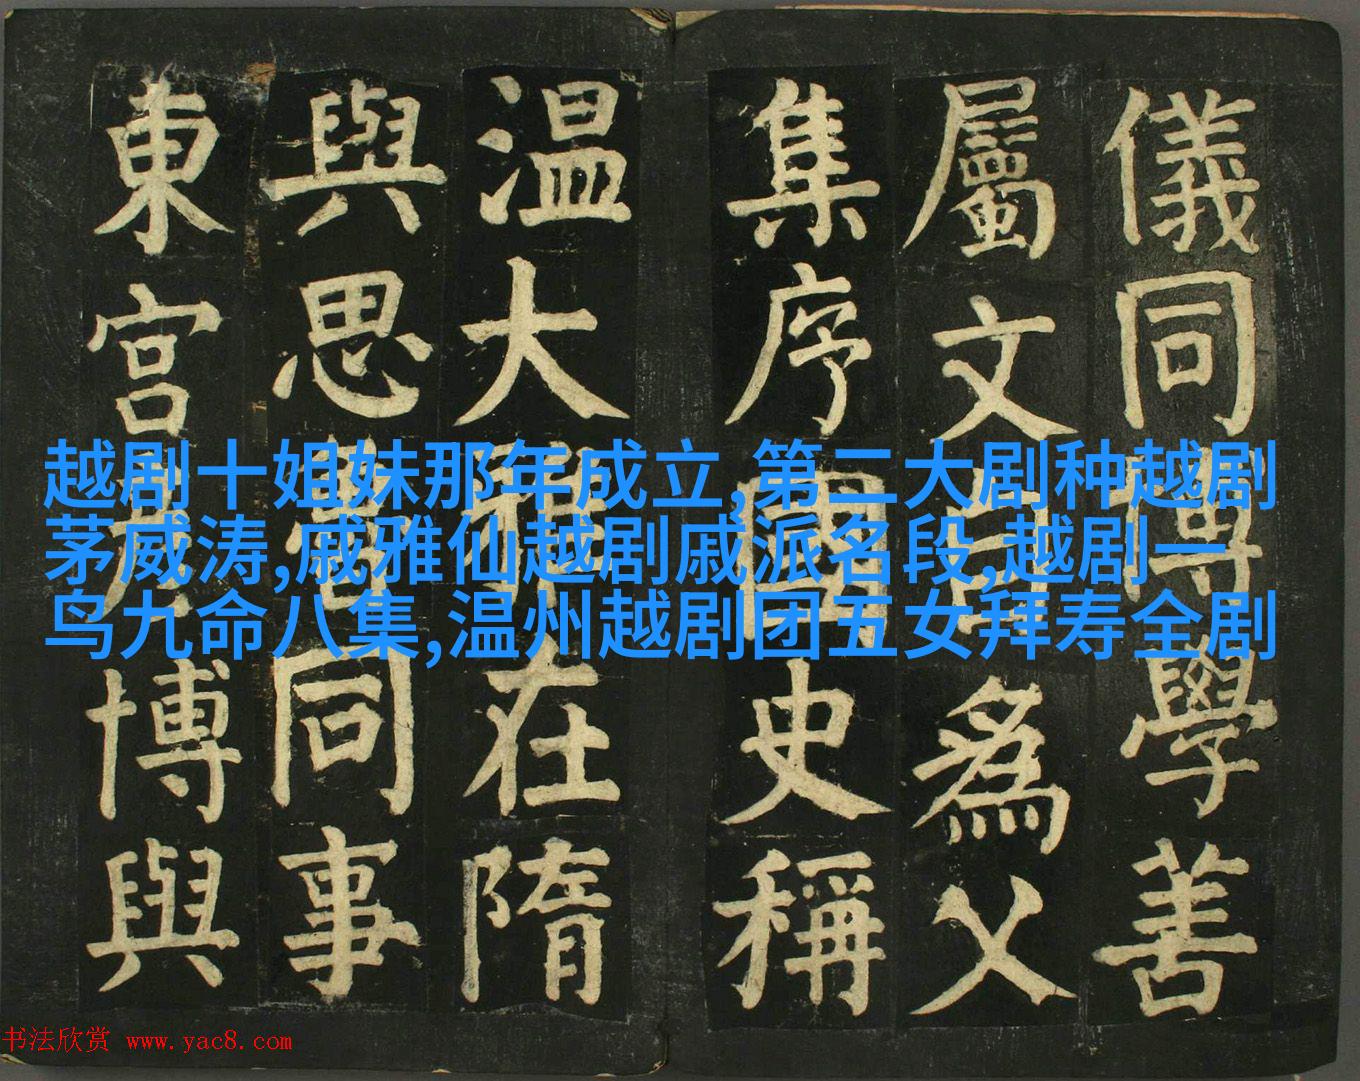 儀同博學善
屬文爲父
集序國史稱
温大雅在隋
與思魯同事
東宮彥博與
越剧十姐妹那年成立,第二大剧种越剧
茅威涛,戚雅仙越剧戚派名段,越剧一
鸟九命八集,温州越剧团五女拜寿全剧
书法欣赏 www.yac8.com